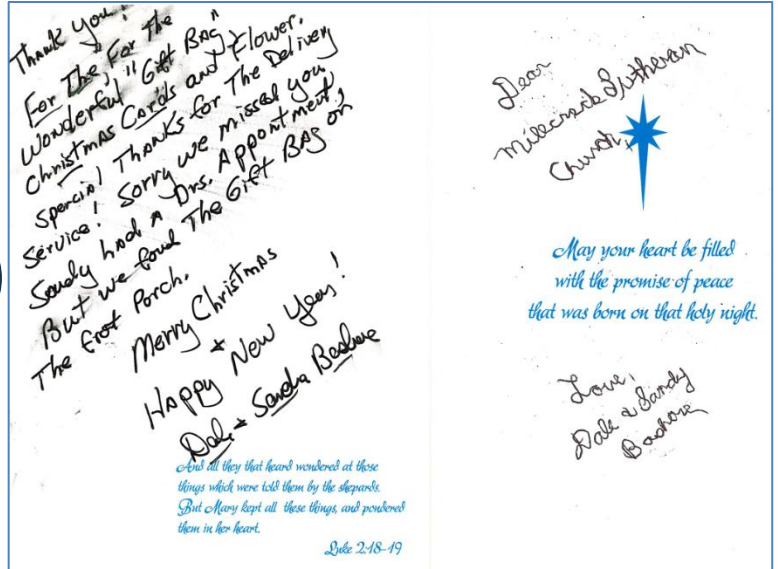 Thank you!
For The For The
Wonderful "Gift BAg"
Christmas Cards and Flower.
Special Thanks for The Delivery
Service! Sorry we missed you,
Sandy had A Drs. Appointment,
But we foud The Gift BAg on
The frot Porch.
Merry Christmas
& Happy New Year!
Dale & Sandra Beshore
And all they that heard wondered at those
things which were told them by the shepards.
But Mary kept all these things, and pondered
them in her heart.
Luke 2:18-19
Dear
Millcreek Lutheran
Church,
May your heart be filled
with the promise of peace
that was born on that holy night.
Love,
Dale & Sandy
Bashore